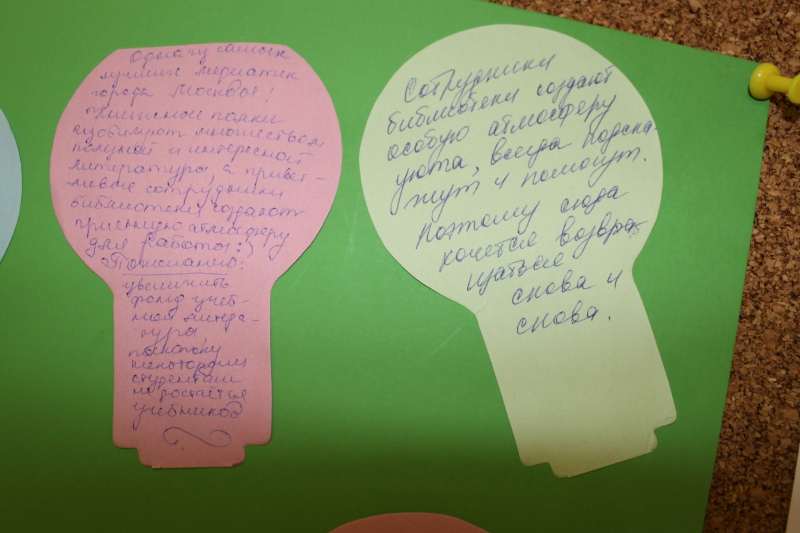 Одна из самых
лучших медиатек
города Москвы!
Книжные полки
изобилуют множеством
полезной и интересной
литературы, а привет-
ливые сотрудники
библиотеки создают
приятную атмосферу
для работы :)
Пожелание:
увеличить
фонд учеб-
ной литера-
туры
поскольку
некоторым
студентам
не достаётся
учебников
Сотрудники
библиотеки создают
особую атмосферу
уюта, всегда подска-
жут и помогут.
Поэтому сюда
хочется возвра-
щаться
снова и
снова.